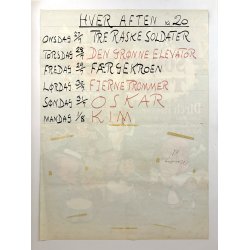 HVER AFTEN KL 20
ONSDAG 27/7 TRE RASKE SOLDATER
TORSDAG 28/7 DEN GRØNNE ELEVATOR
FREDAG 29/7 FÆRGEKROEN
LØRDAG 30/7 FJERNE TROMMER
SØNDAG 31/7 OSKAR
MANDAG 1/8 KIM